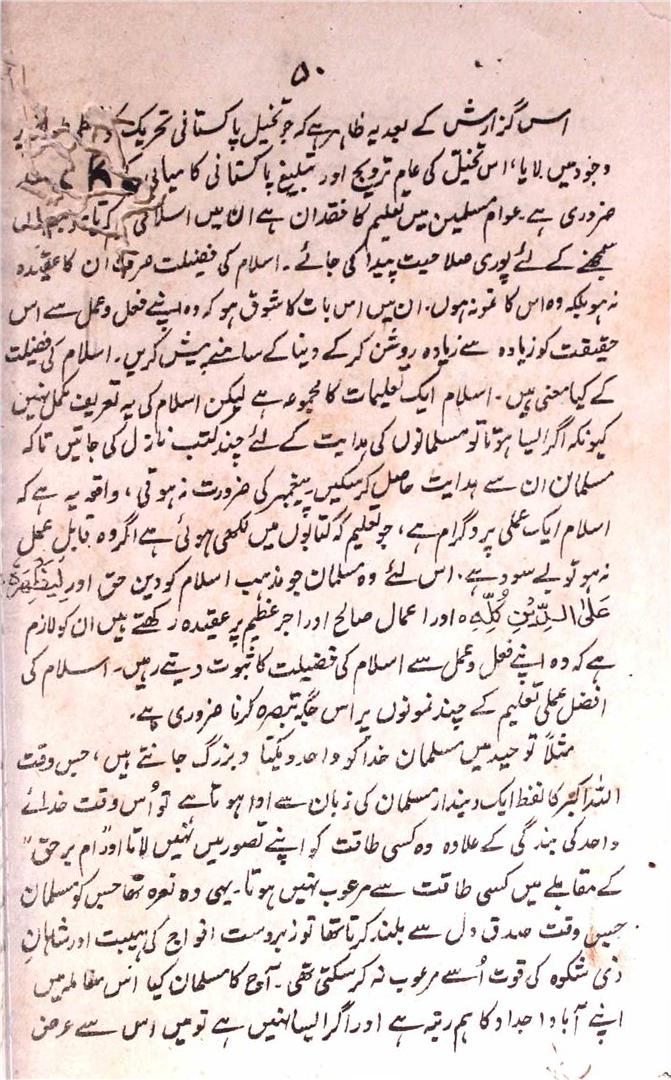 ۵۰
اس گزارش کے بعد یہ ظاہر ہے کہ جو تخیل پاکستانی تحریک کو
وجود میں لایا، اس تخیل کی عام ترویج اور تبلیغ پاکستانی کامیابی
ضروری ہے۔ عوام مسلمین میں تعلیم کا فقدان ہے ان میں اسلامی
سمجھنے کے لئے پوری صلاحیت پیدا کی جائے۔ اسلام کی فضیلت صرف ان کا عقیدہ
نہ ہو بلکہ وہ اس کا نمونہ ہوں۔ ان میں اس بات کا شوق ہو کہ وہ اپنے فعل و عمل سے اس
حقیقت کو زیادہ سے زیادہ روشن کر کے دنیا کے سامنے پیش کریں۔ اسلام کی فضیلت
کے کیا معنی ہیں۔ اسلام ایک تعلیمات کا مجموعہ ہے لیکن اسلام کی یہ تعریف مکمل نہیں
کیونکہ اگر ایسا ہوتا تو مسلمانوں کی ہدایت کے لئے چند کتب نازل کی جاتیں تاکہ
مسلمان ان سے ہدایت حاصل کر سکیں پیغمبر کی ضرورت نہ ہوتی، واقعہ یہ ہے کہ
اسلام ایک عملی پروگرام ہے، جو تعلیم کہ کتابوں میں لکھی ہوئی ہے اگر وہ قابل عمل
نہ ہو تو بے سود ہے۔ اس لئے وہ مسلمان جو مذہب اسلام کو دین حق اور لِیُظْہِرَہٗ
عَلَی الدِّیْنِ کُلِّہٖ ہ اور اعمال صالح اور اجر عظیم پر عقیدہ رکھتے ہیں ان کو لازم
ہے کہ وہ اپنے فعل و عمل سے اسلام کی فضیلت کا ثبوت دیتے رہیں۔ اسلام کی
افضل عملی تعلیم کے چند نمونوں پر اس جگہ تبصرہ کرنا ضروری ہے۔
مثلاً توحید میں مسلمان خدا کو واحد و یکتا و بزرگ جانتے ہیں، جس وقت
اللہ اکبر کا لفظ ایک دیندار مسلمان کی زبان سے ادا ہوتا ہے تو اُس وقت خدائے
واحد کی بندگی کے علاوہ وہ کسی طاقت کو اپنے تصور میں نہیں لاتا اور "ام برحق"
کے مقابلے میں کسی طاقت سے مرعوب نہیں ہوتا۔ یہی وہ نعرہ تھا جس کو مسلمان
جس وقت صدق دل سے بلند کرتا تھا تو زبردست افواج کی ہیبت اور شاہانِ
ذی شکوہ کی قوت اُسے مرعوب نہ کر سکتی تھی۔ آج کا مسلمان کیا اس معاملہ میں
اپنے آباو اجداد کا ہم رتبہ ہے اور اگر ایسا نہیں ہے تو میں اس سے عرض